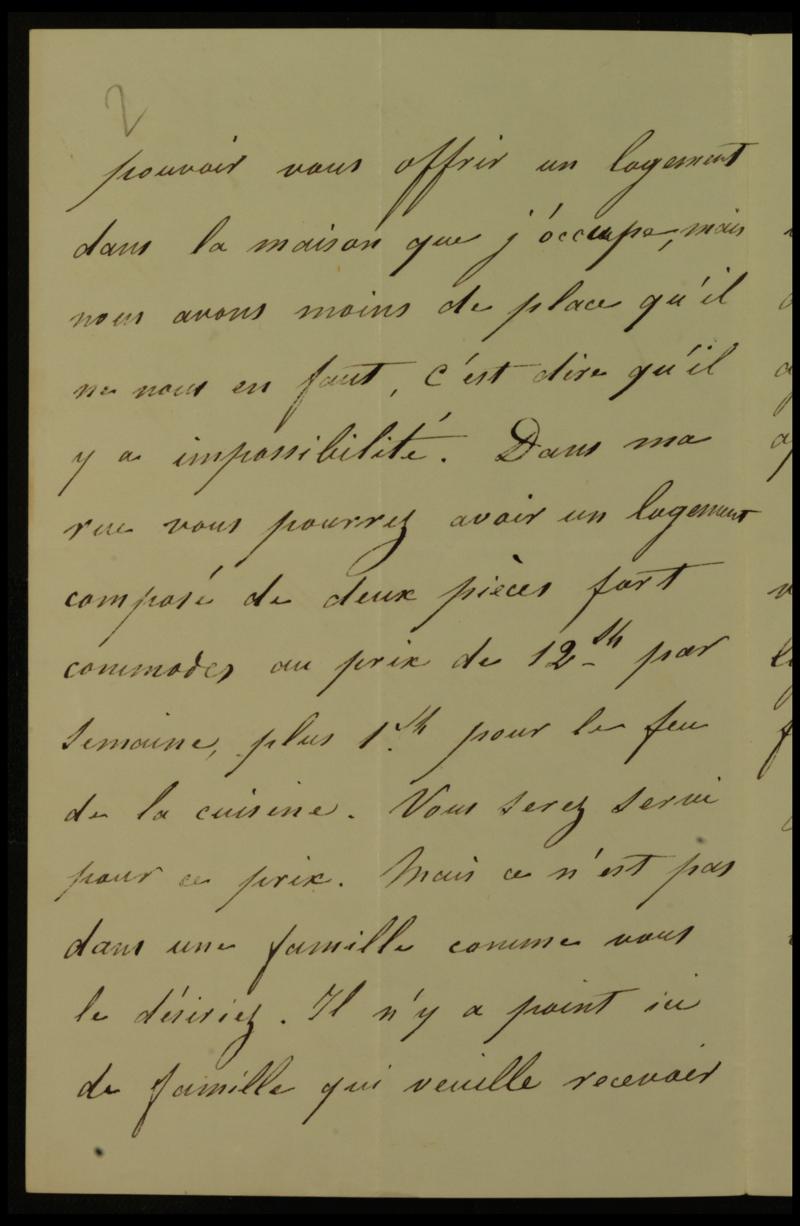 2
pouvoir vous offrir un logement
dans la maison que j'occupe, mais
nous avons moins de place qu'il
ne nous en faut, c'est dire qu'il
y a impossibilité. Dans ma
rue vous pourrez avoir un logement
composé de deux pièces fort
commodes au prix de 12 sh par
semaine, plus 1 sh pour le feu
de la cuisine. Vous serez servi
pour ce prix. Mais ce n'est pas
dans une famille comme vous
le désiriez. Il n'y a point ici
de famille qui veuille recevoir